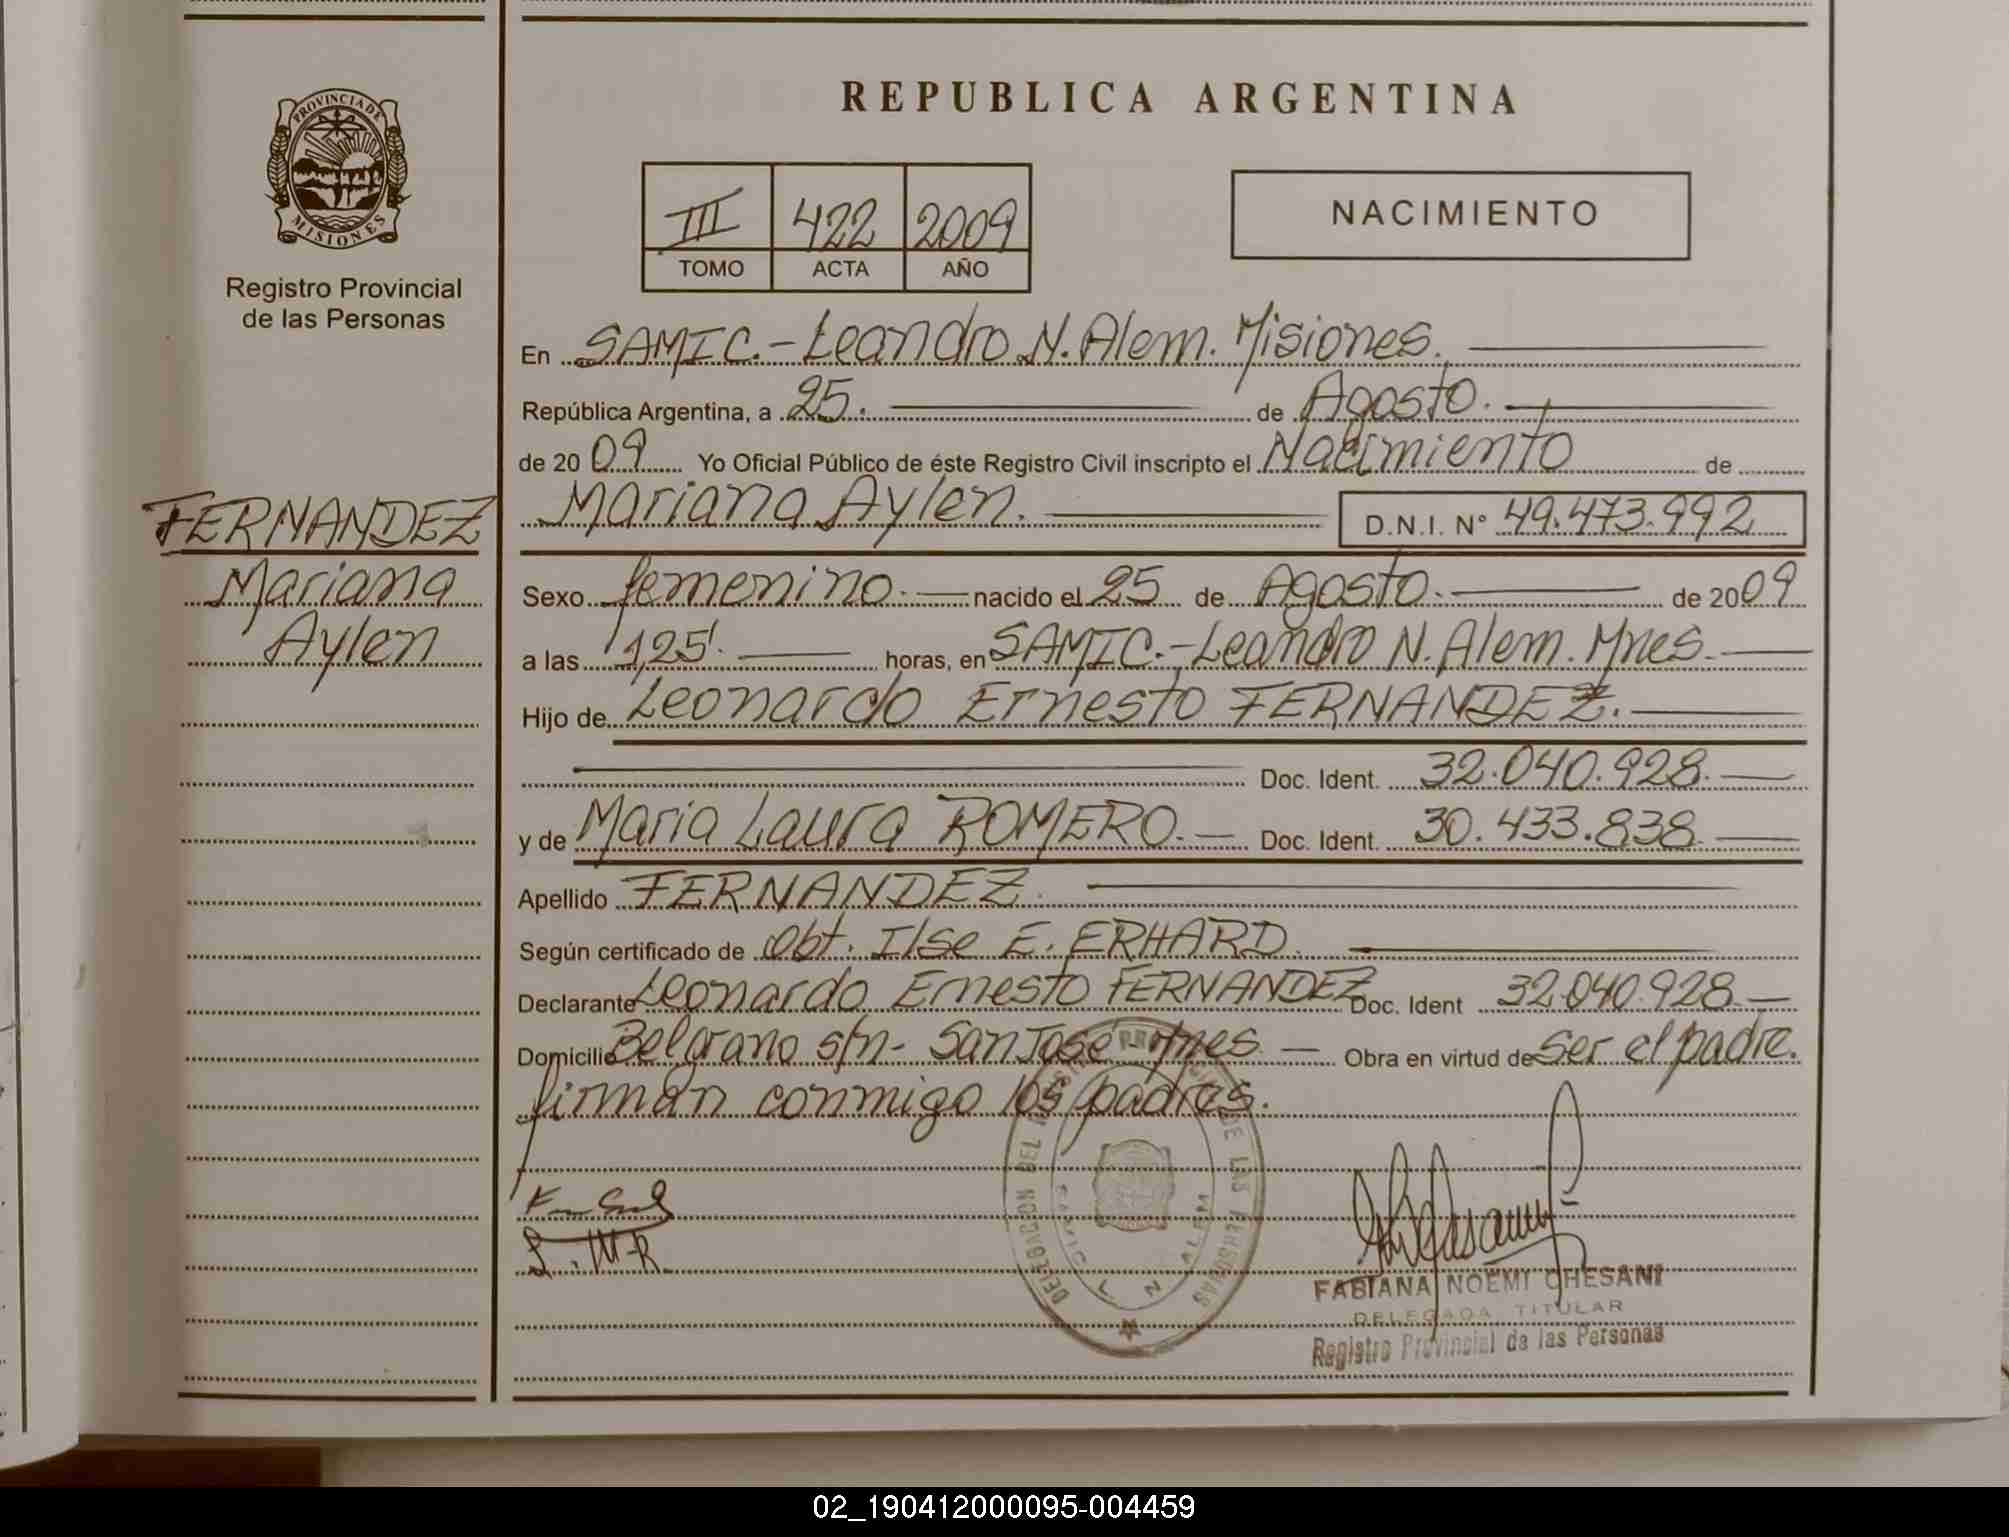 PROVINCIA DE
MISIONES
Registro Provincial
de las Personas
FERNANDEZ
Mariana
Aylen
REPUBLICA ARGENTINA
III 422 2009
TOMO ACTA AÑO
NACIMIENTO
En SAMIC.-Leandro N. Alem. Misiones.
República Argentina, a 25. de Agosto.
de 2009 Yo Oficial Público de éste Registro Civil inscripto el Nacimiento de
Mariana Aylen. D.N.I. N° 49.473.992
Sexo femenino. nacido el 25 de Agosto. de 2009
a las 1,25'. horas, en SAMIC.-Leandro N. Alem. Mnes.
Hijo de Leonardo Ernesto FERNANDEZ.
Doc. Ident. 32.040.928.
y de Maria Laura ROMERO. Doc. Ident. 30.433.838
Apellido FERNANDEZ.
Según certificado de Obt. Ilse E. ERHARD.
Declarante Leonardo Ernesto FERNANDEZ Doc. Ident 32.040.928.
Domicilio Belgrano s/n- San Jose Mnes. Obra en virtud de Ser el padre.
firman conmigo los padres.
L. M-R.
DELEGACION DEL REGISTRO PROVINCIAL DE LAS PERSONAS
SAMIC L N ALEM
FABIANA NOEMI CHESANI
DELEGADA TITULAR
Registro Provincial de las Personas
02_190412000095-004459